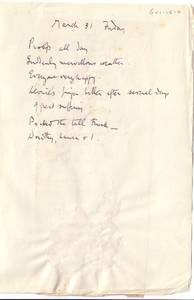 March 31 Friday
Photos all day
Suddenly marvellous weather.
Everyone very happy.
finger better after several days
of great suffering
Packed the tall Trunk —
Dorothy, Laura & I.